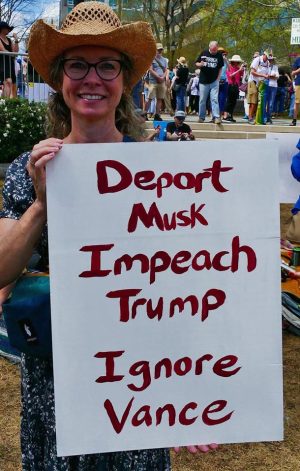 Deport
Musk
Impeach
Trump
Ignore
Vance